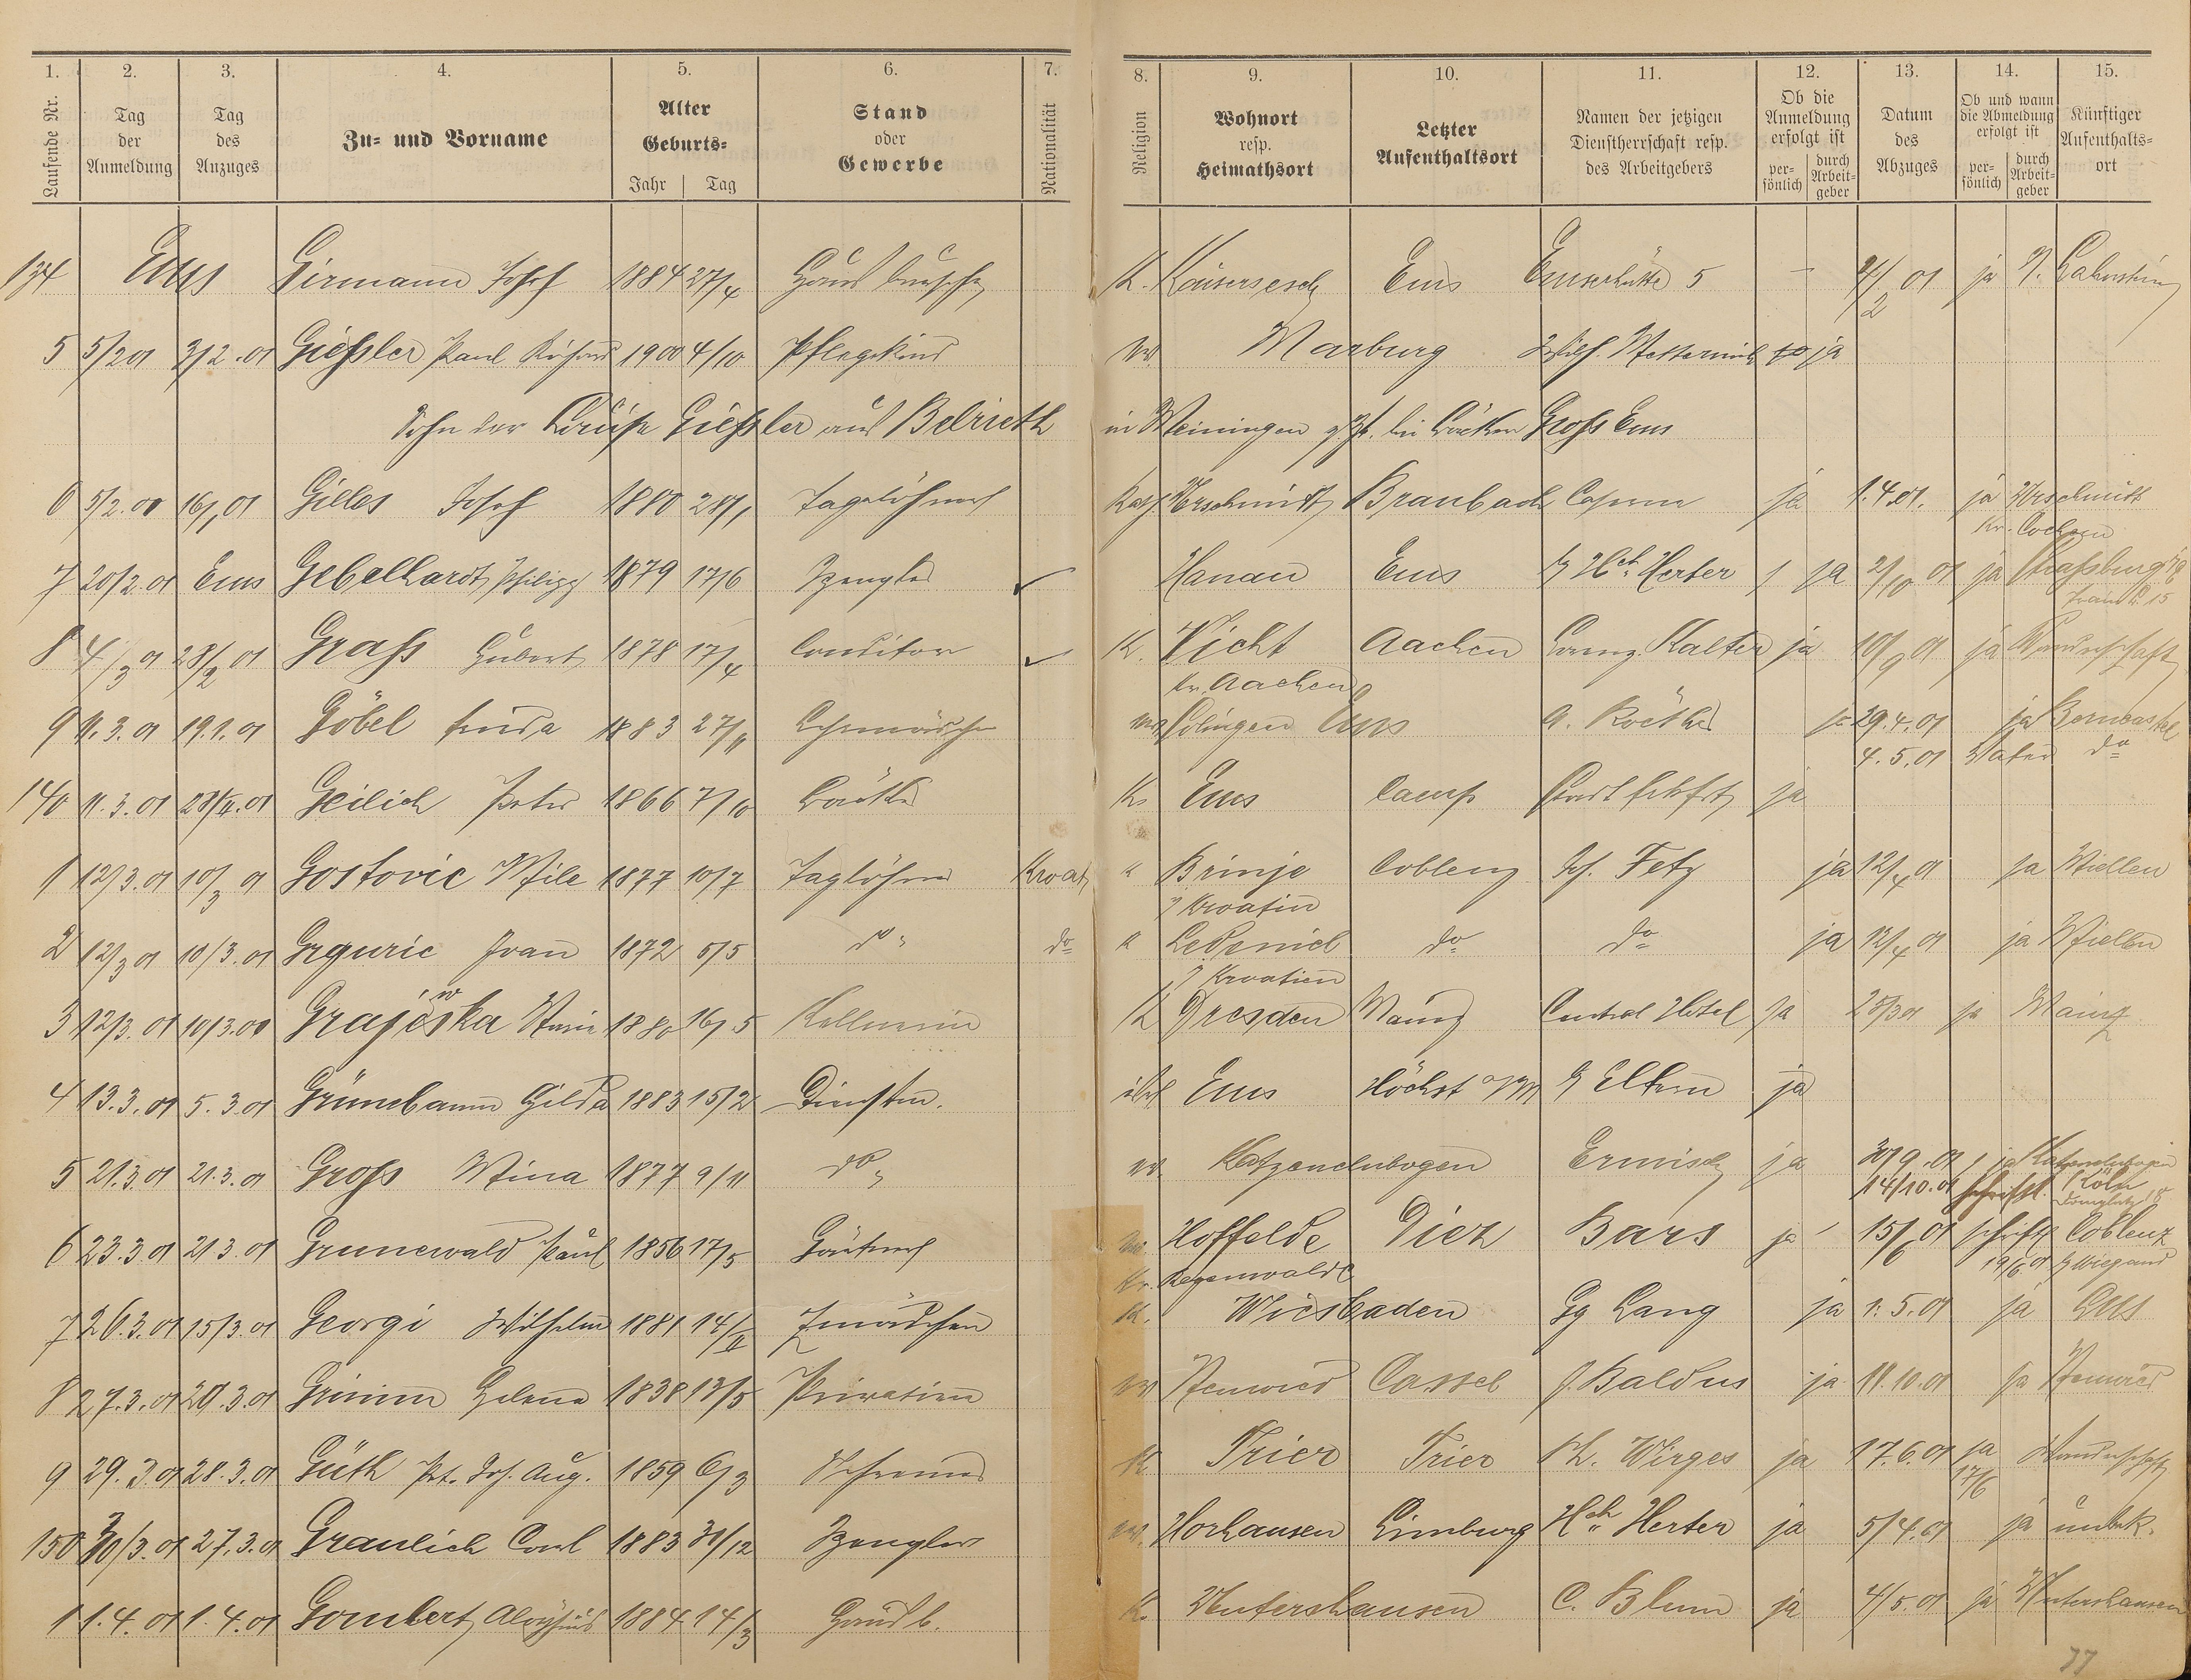 1. 2. 3. 4. 5. 6. 7. 8. 9. 10. 11. 12. 13. 14. 15.
Laufende Nr. Tag der Anmeldung Tag des Anzuges Zu- und Vorname Alter Geburts= Jahr Tag Stand oder Gewerbe Nationalität Religion Wohnort resp. Heimathsort Letzter Aufenthaltsort Namen der jetzigen Dienstherrschaft resp. des Arbeitgebers Ob die Anmeldung erfolgt ist per=sönlich durch Arbeit=geber Datum des Abzuges Ob und wann die Abmeldung erfolgt ist per=sönlich durch Arbeit=geber Künftiger Aufenthalts=ort
134 Ems Girmann Josef 1884 27/4 Hausbursche K. Kaisersesch Ems Emserhütte 5 – 4/2 01 ja N. Lahnstein
5 5/2 01 3/2.01 Gießler Paul Richard 1900 4/10 Pflegekind ev. Marburg Wilh. ja
Sohn der Luise Gießler aus Belrieth in Meiningen z. Zt. bei Bäcker Groß Ems
6 5/2.01 16/1 01 Gilles Josef 1880 28/1 Tagelöhner Kath Urschmitt Braubach ja 1.4.01. ja Urschmitt
Kr. Cochem
7 20/2.01 Ems Gebelhardt Philipp 1879 17/6 Spengler ✓ Hanau Ems b/ Hch. Herter ja 2/10 01 ja Straßburg
8 4/3 01 28/2 01 Graß Hubert 1878 17/4 Conditor ✓ K. Vicht Aachen Lorenz Kalter ja 10/9 01 ja Wanderschaft
Kr. Aachen
9 11.3.01 19.1.01 Göbel Linda 1883 27/11 Lehrmädchen Solingen Ems A. Roether ja 29.4.01 ja Berncastel
4.5.01 Vater do
140 11.3.01 Geilich Peter 1866 7/10 Bäcker K. Ems Camp ja
1 12/3.01 10/3 01 Gostovic Mile 1877 10/7 Taglöhner Kroat. " Brinje Coblenz Jos. Fetz ja 12/4 01 ja Miellen
i/ Kroatien
2 12/3 01 10/3.01 Grguric Ivan 1872 5/5 do do " do do ja 12/4 01 ja Miellen
i/ Kroatien
3 12/3.01 10/3.00 Grajewska Maria 1880 16/5 Kellnerin K Dresden Mainz Central Hotel ja 25/3 01 ja Mainz
4 13.3.01 5.3.01 Grünebaum Hilda 1883 15/2 Dienstm. isrl Ems Höchst a/M b/ Eltern ja
5 21.3.01 21.3.01 Groß Mina 1877 9/11 do ev. Katzenelnbogen Ermisch ja 30/9.01 ja Katzenelnbogen
14/10.01 schriftl. Köln
6 23.3.01 21.3.01 Grunewald Paul 1856 17/5 Gärtner ev. Hoffelde Diez Bärs ja 15/6 01 schriftl Coblenz
Kr. Regenwalde 19/6.01 b/ Wiegand
7 26.3.01 15/3.01 Georgi Wilhelm 1881 14/II Zmädchen K. Wiesbaden Gg Lang ja 1.5.01 ja Ems
8 27.3.01 20.3.01 Grimm Helene 1838 13/5 Privatière ev Neuwied Cassel J. Baldus ja 11.10.01 ja Neuwied
9 29.3.01 28.3.01 Güth Pet. Jos. Aug. 1859 6/3 Schreiner K. Trier Trier Ph. Wirges ja 17.6.01 ja 17/6 Wanderschaft
150 30/3.01 27.3.01 Graulich Carl 1883 31/12 Spengler ev. Horhausen Limburg Hch. Herter ja 5/4.01 ja unbek.
1 1.4.01 1.4.01 Gombert Aloysius 1884 14/3 Hausb. K. Untershausen C. Blum ja 4/5.01 ja Untershausen
77